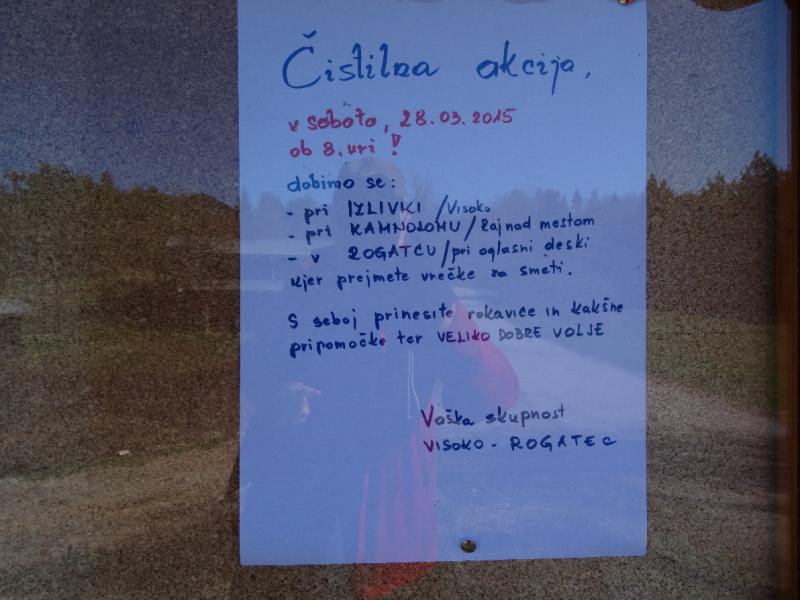 Čistilna akcija,
v soboto, 28.03.2015
ob 8. uri !
dobimo se:
- pri IZLIVKI /Visoko
- pri KAMNOLOMU / Raj nad mestom
- v ROGATCU / pri oglasni deski
kjer prejmete vrečke za smeti.
S seboj prinesite rokavice in kakšne
pripomočke ter VELIKO DOBRE VOLJE
Vaška skupnost
VISOKO - ROGATEC